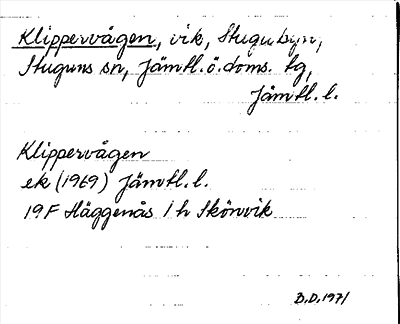 Klippervågen, vik, Stugubyn,
Stuguns sn, Jämtl.ö.doms. tg,
Jämtl. l.
Klippervågen
ek (1969) Jämtl. l.
19F Häggenås 1 h Skörvik
B.D. 1971